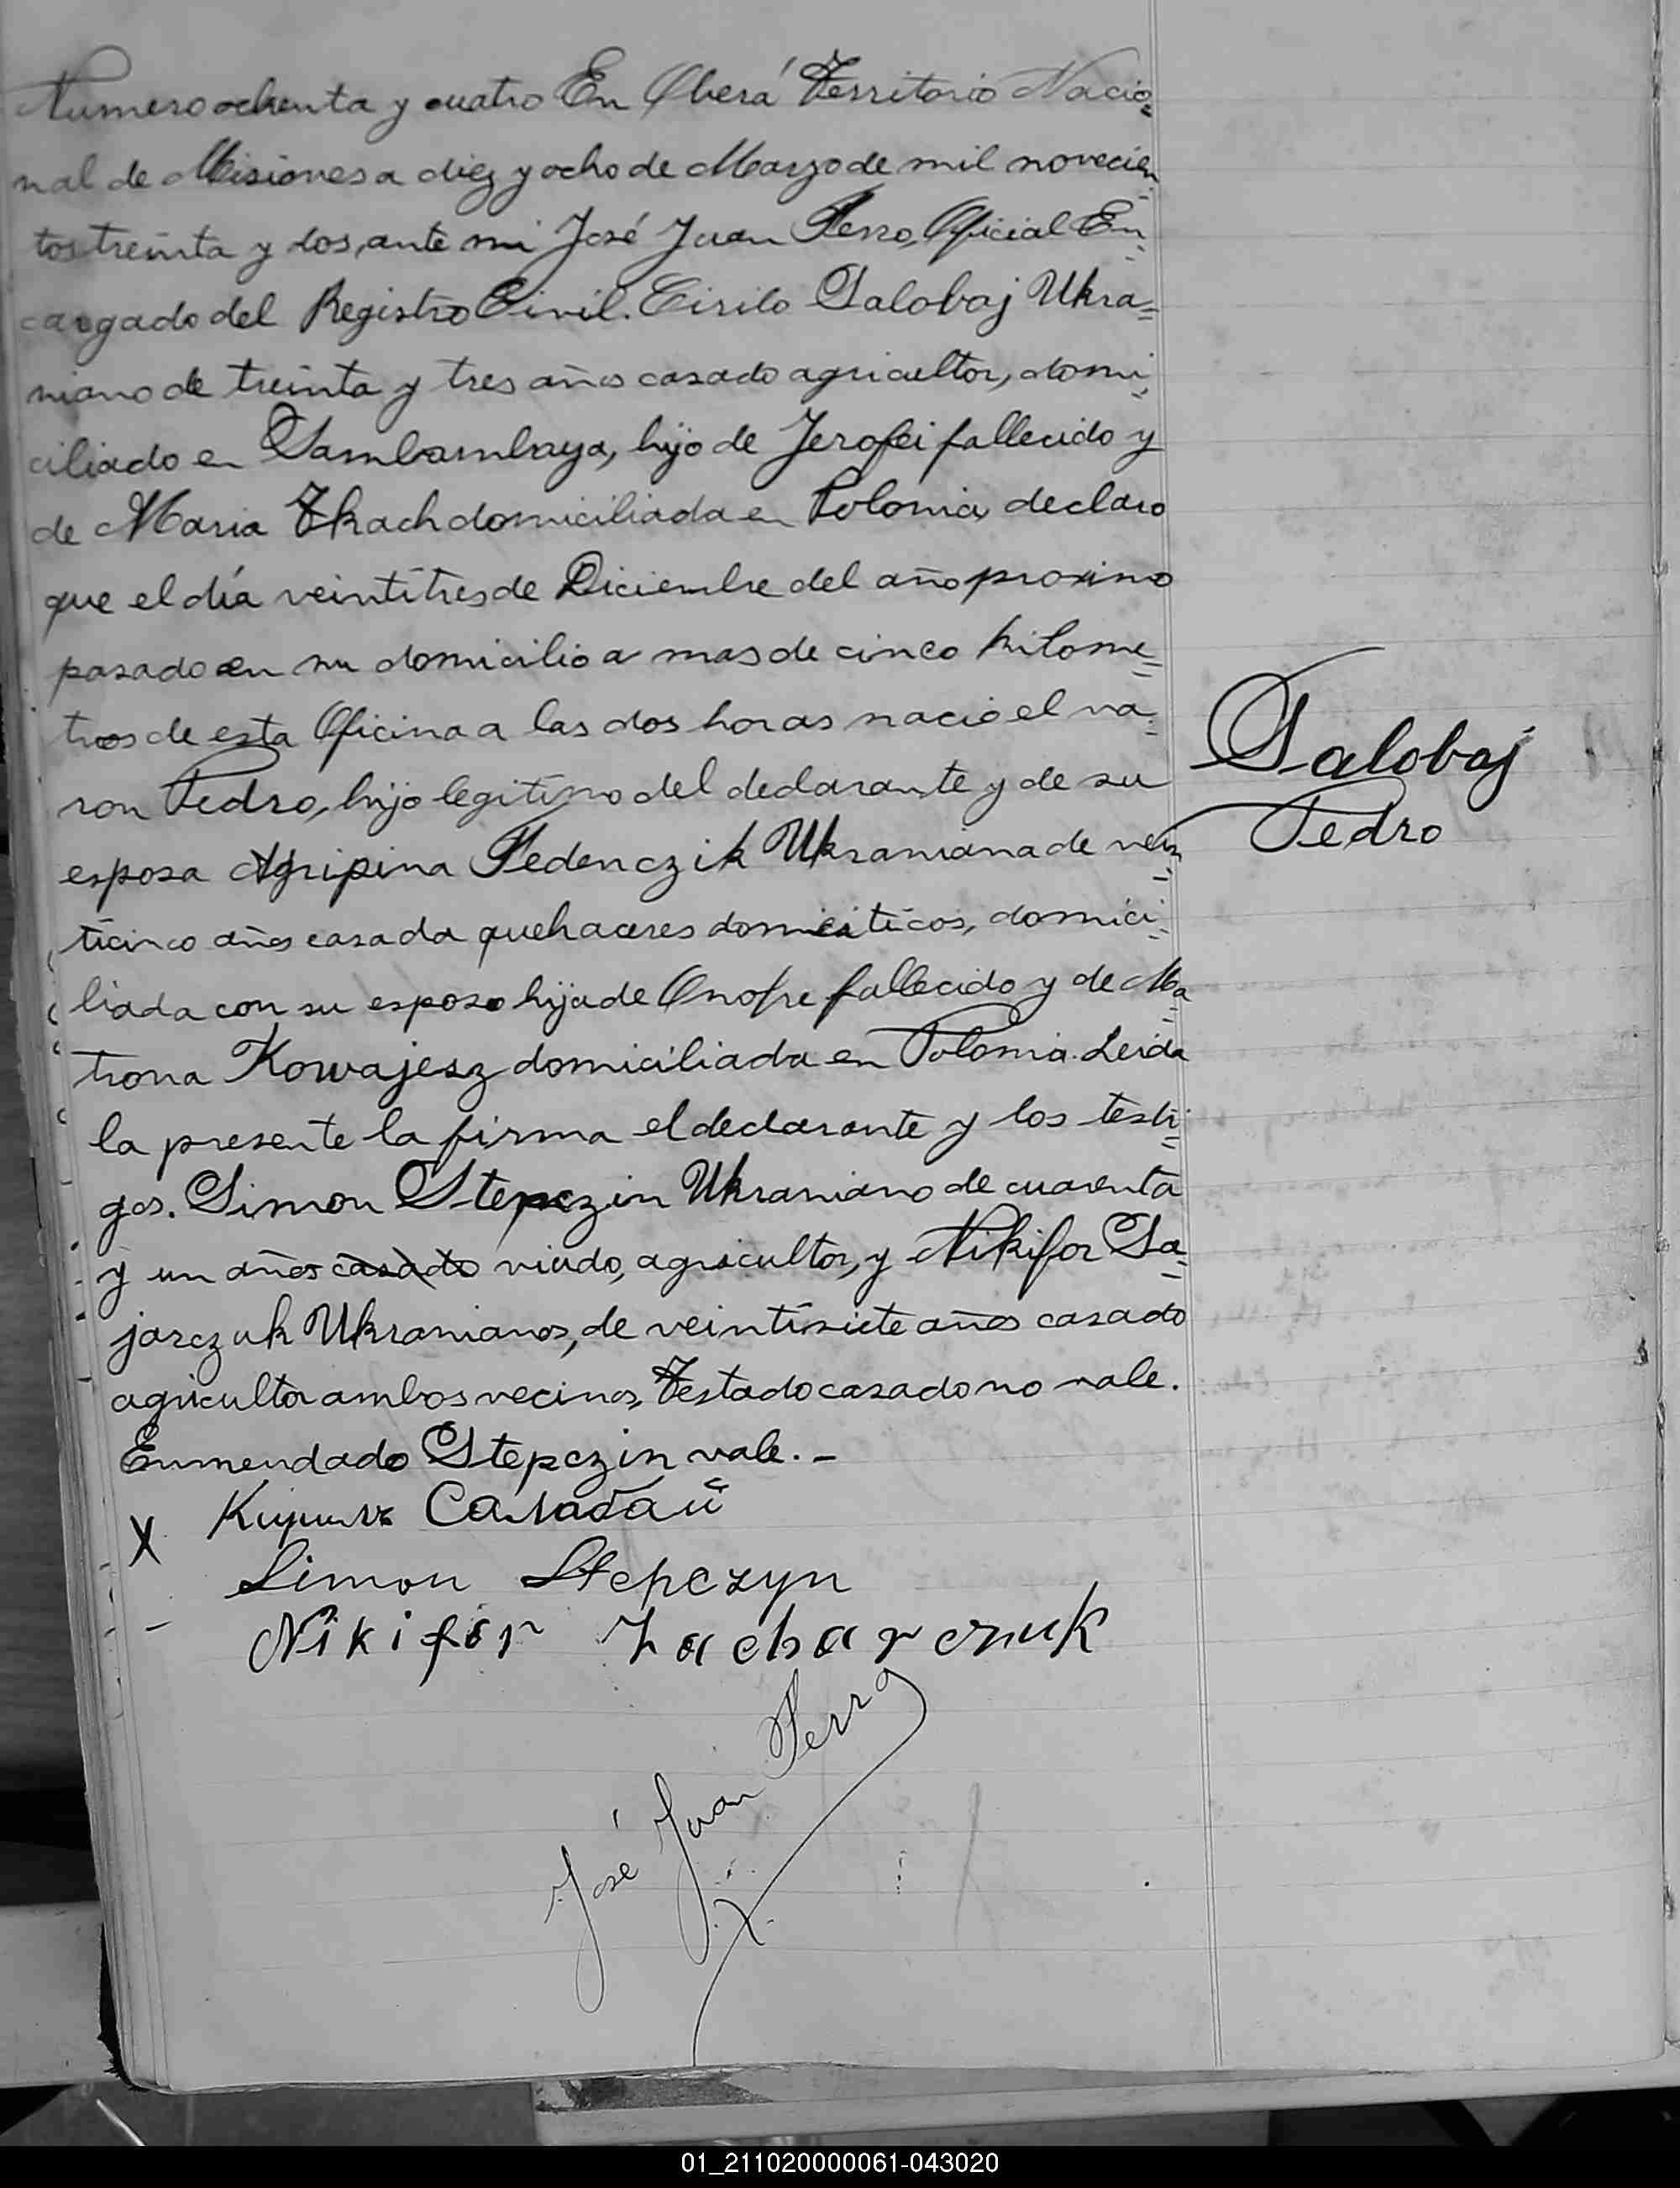 Numero ochenta y cuatro En Oberá Territorio Nacio=
nal de Misiones a diez y ocho de Marzo de mil novecien=
tos treinta y dos, ante mi José Juan Ferro, Oficial En=
cargado del Registro Civil. Cirilo Salobaj Ukra=
niano de treinta y tres años casado agricultor, domi=
ciliado en Sambambaya, hijo de Jerofei fallecido y
de Maria Tkach domiciliada en Polonia, declaro
que el día veintitres de Diciembre del año proximo
pasado en su domicilio a mas de cinco kilome=
tros de esta Oficina a las dos horas nacio el va=
ron Pedro, hijo legitimo del declarante y de su
Salobaj
Pedro
esposa Agripina Fedenczik Ukraniana de vein=
ticinco años casada quehaceres domesticos, domici=
liada con su esposo hija de Onofre fallecido y de Ma=
trona Kowajesz domiciliada en Polonia. Leida
la presente la firma el declarante y los testi=
gos. Simon Stepczin Ukraniano de cuarenta
y un años casado viudo, agricultor, y Nikifor Sa=
jarczuk Ukranianos, de veintisiete años casado
agricultor ambos vecinos, Testado casado no vale.
Enmendado Stepczin vale. -
X Кирило Салабай
Simon Stepczyn
Nikifor Zacharczuk
José Juan Ferro
01_211020000061-043020